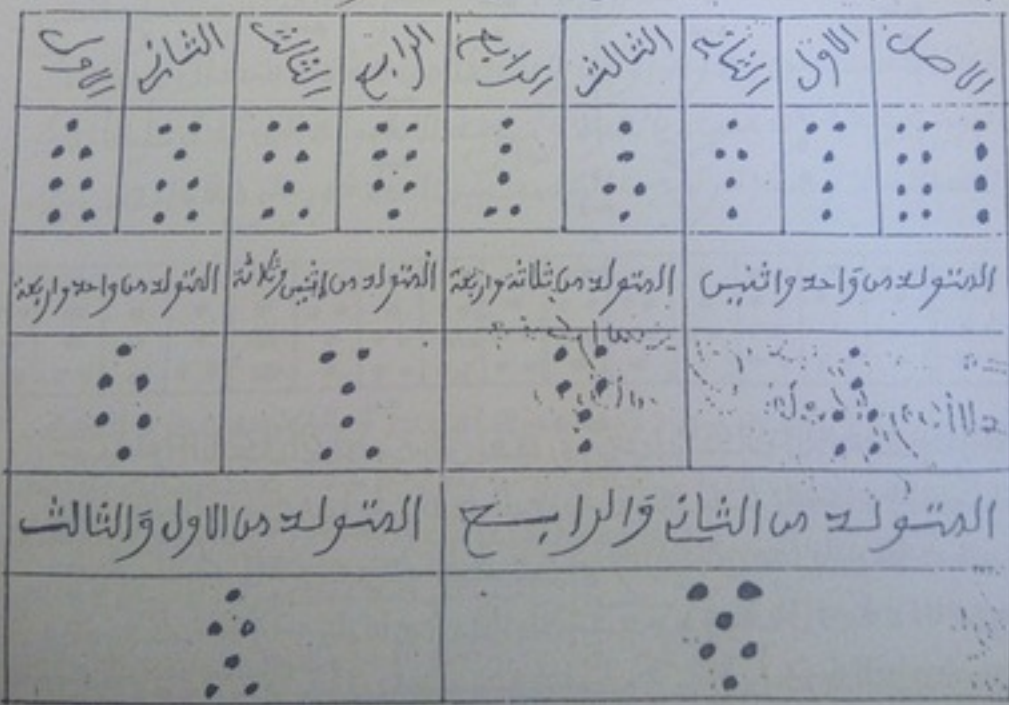 الاصل الاول الثاني الثالث الرابع الرابع الثالث الثاني الاول
المتولد من واحد واثنين المتولد من ثلاثة واربعة المتولد من اثنين وثلاثة المتولد من واحد واربعة
المتولد من الثاني والرابع المتولد من الاول والثالث